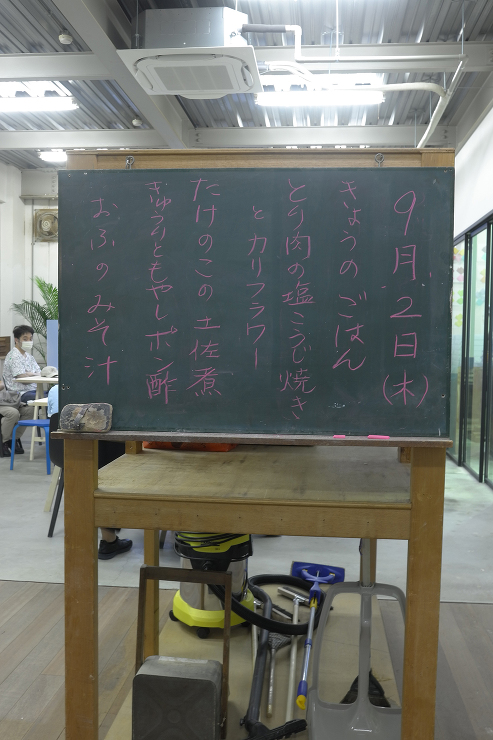 9月2日(木)
きょうのごはん
とり肉の塩こうじ焼き
とカリフラワー
たけのこの土佐煮
きゅうりともやしポン酢
おふのみそ汁